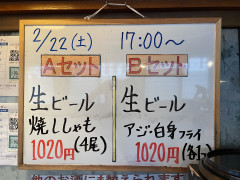 2/22(土) 17:00～
Aセット
生ビール
焼ししゃも
1020円(4尾)
Bセット
生ビール
アジ・白身フライ
1020円(各1つ)